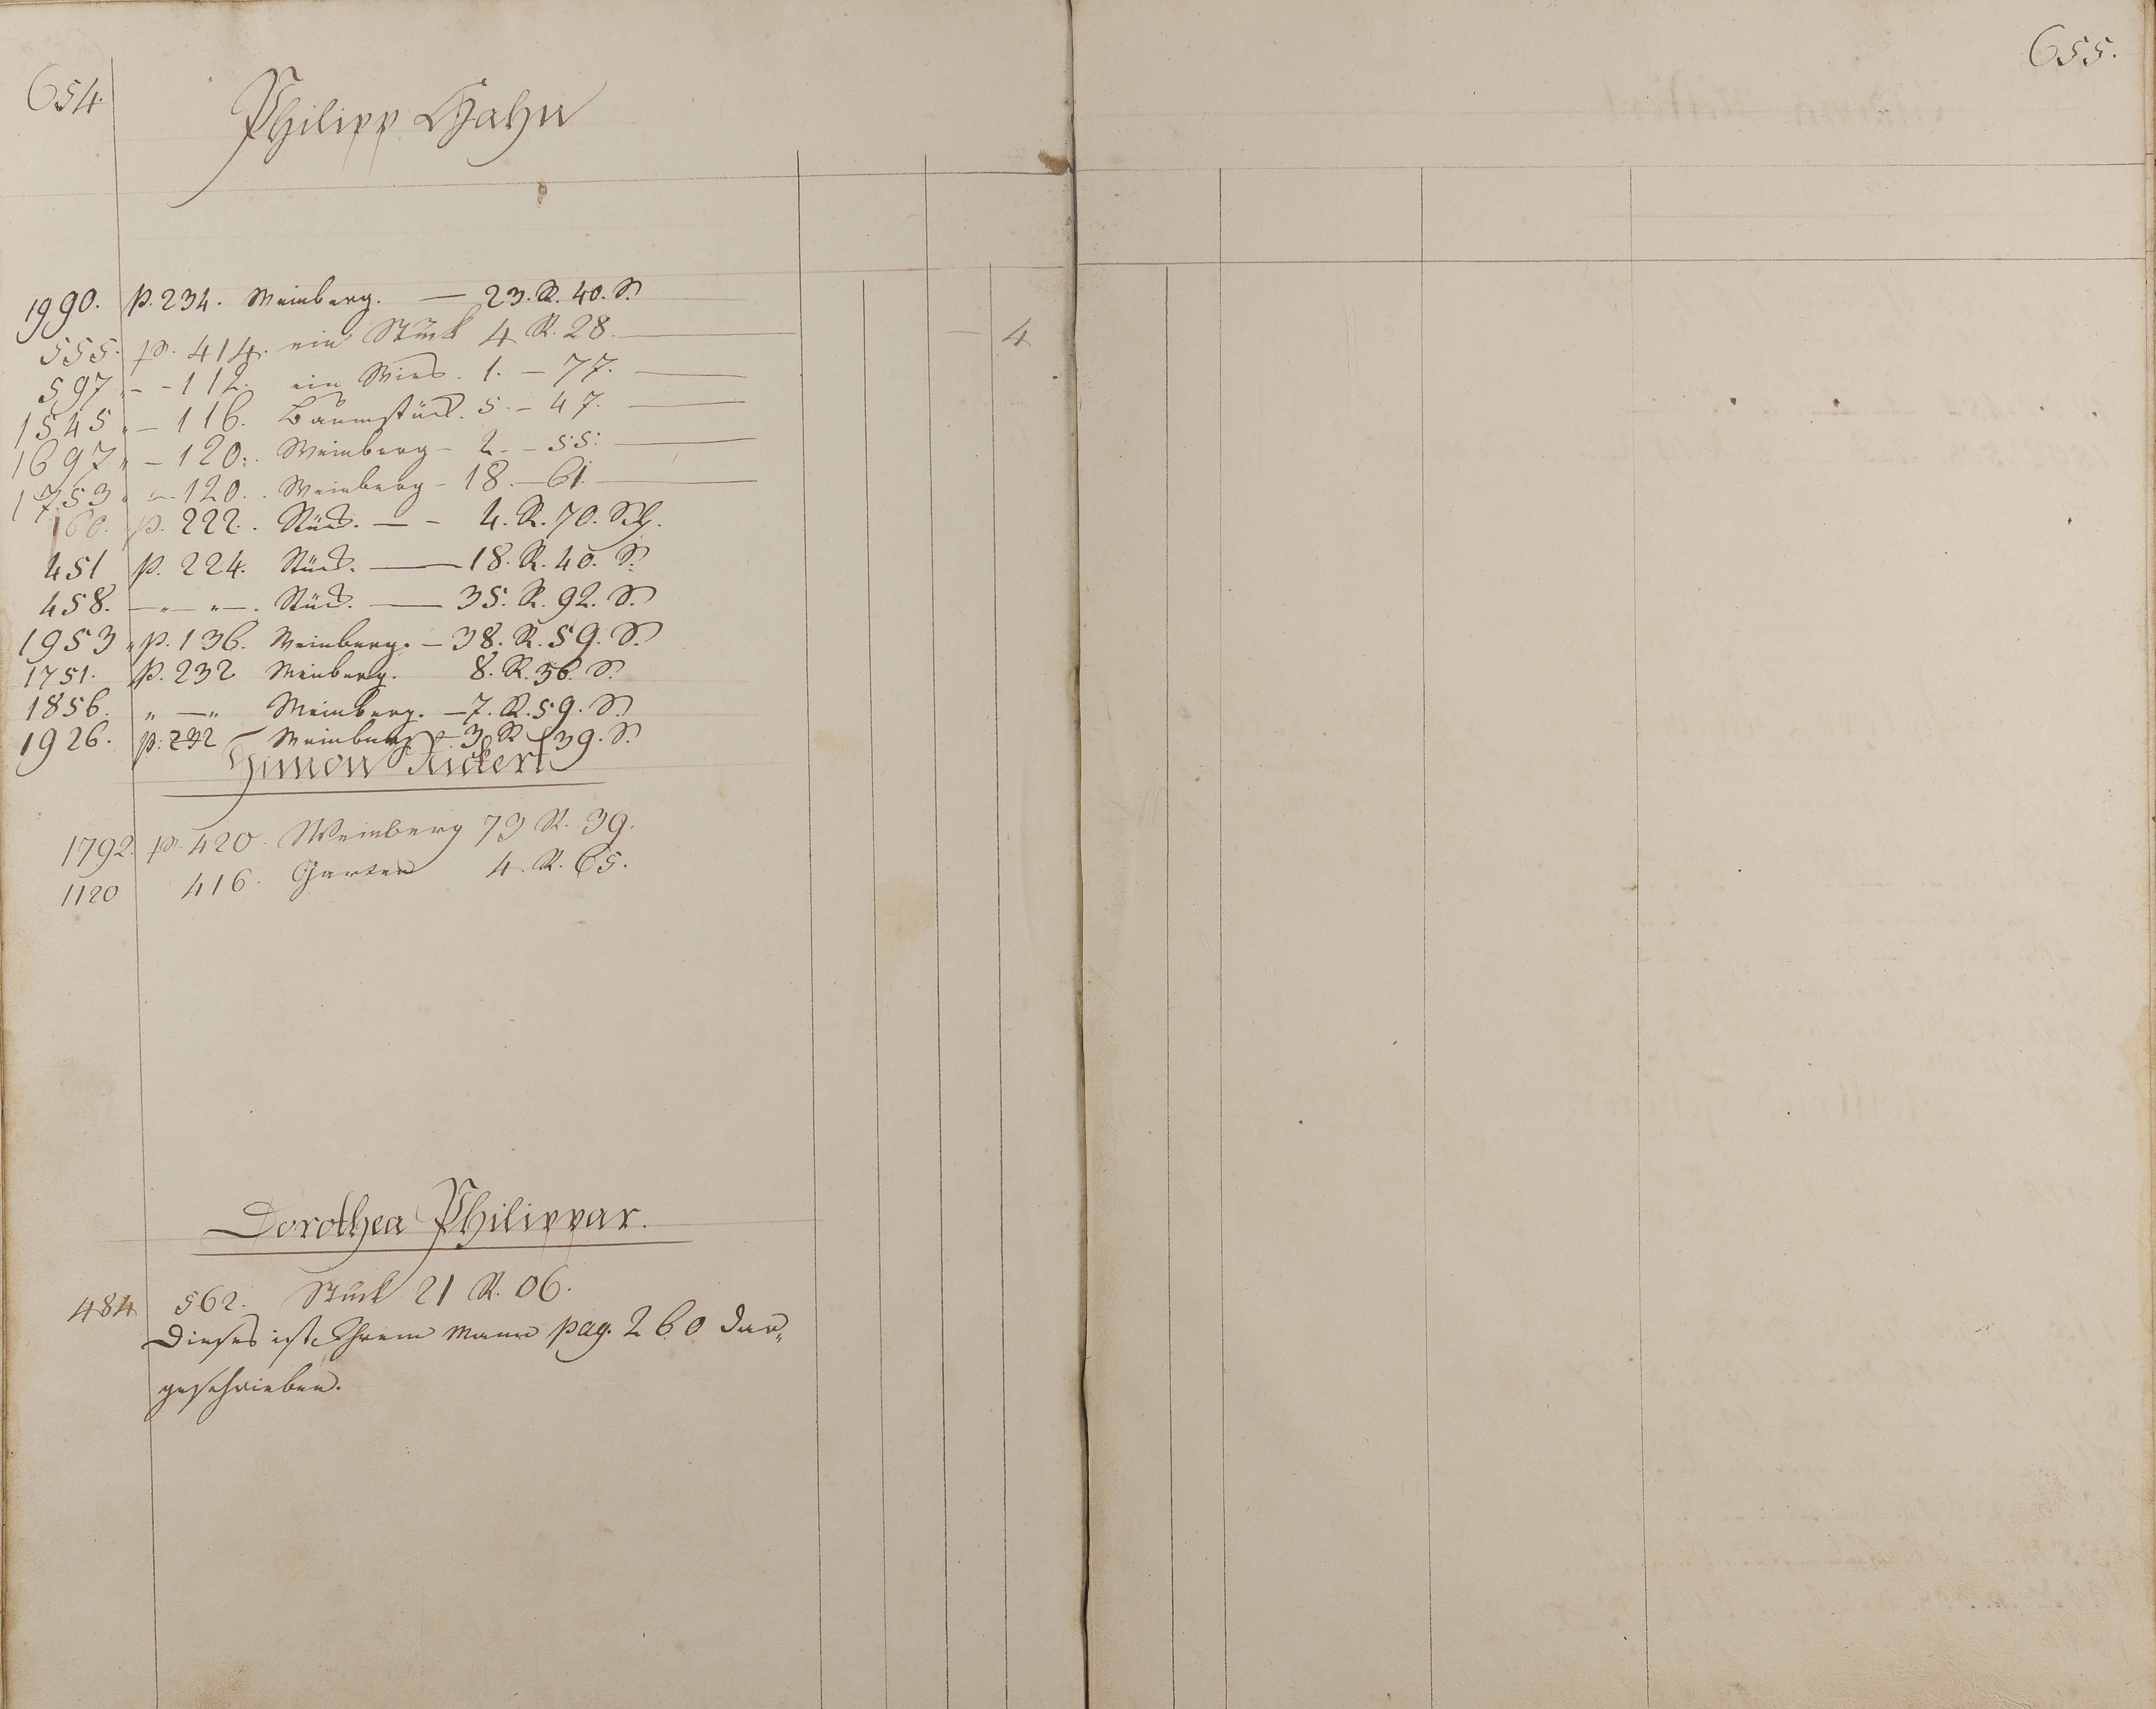 654.
655.
Philipp Hahn
1990. p. 234. Weinberg. — 23. R. 40. S.
555. p. 414. ein Stück 4 R. 28. — — 4
597 " - - 112. ein Wies. 1. — 77. —
1545 " — 116. Baumstück. 5. — 47. —
1697 " — 120. Weinberg — 2. — 55. —
1753 " — 120. Weinberg — 18. — 61. —
160. p. 222. Stück. — - 4. R. 70. Sch.
451 p. 224. Stück. — 18. R. 40. S.
458. — " — " —. Stück. — 35. R. 92. S.
1953 " p. 136. Weinberg. — 38. R. 59. S.
1751. p. 232 Weinberg. 8. R. 36. S.
1856. " — " Weinberg. — 7. R. 59. S.
1926. p. 232 Weinberg — 3 R 39. S.
Simon Rickert
1792. p. 420. Weinberg 73 R. 39.
1120 416. Garten 4. R. 65.
Dorothea Philippar.
484 562. Stück 21 R. 06.
Dieses ist Ihrem Mann pag. 260 dar„
geschrieben.